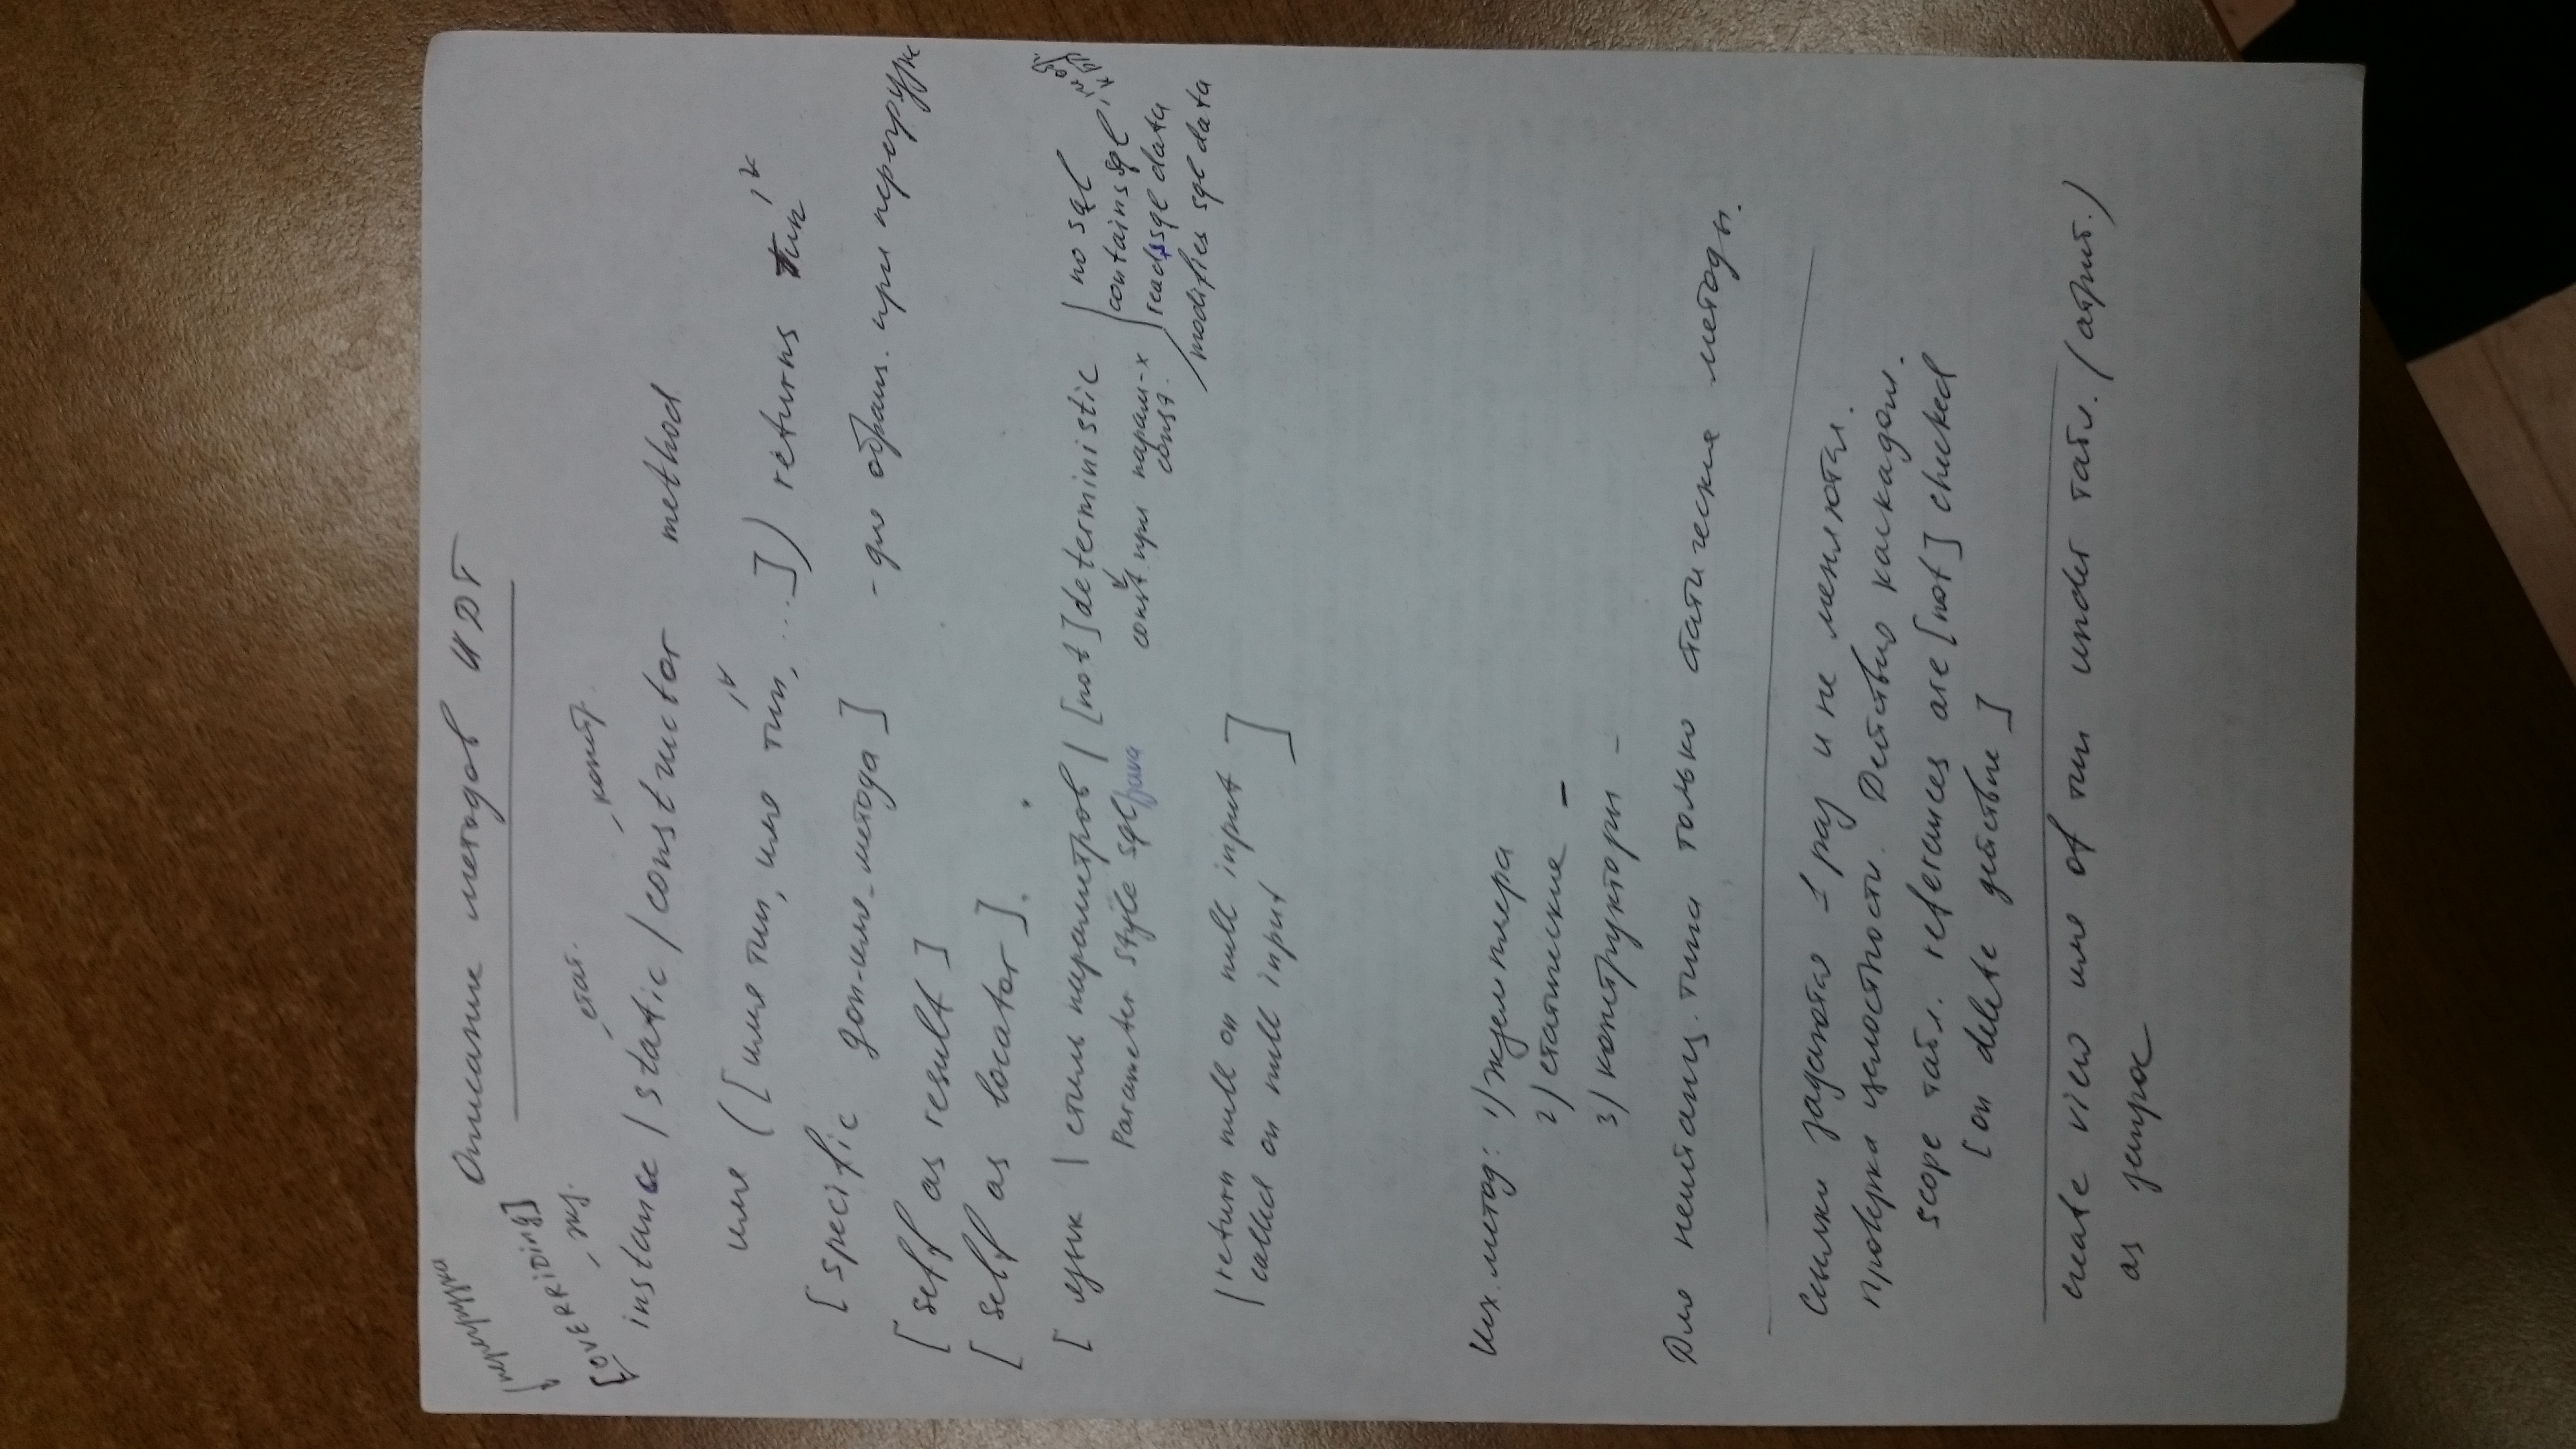 перегрузка
Описание методов UDT
[OVERRIDing]
экз. стат. констр.
instance / static / constructor method
имя ([имя тип, имя тип, ...]) returns тип
[specific доп-имя-метода] - для обращ. при перегрузке
[self as result]
[self as locator].
[язык | стиль параметров / [not] deterministic | no sql
Parameter style sql/java const при парам-х const. | contains sql , не обр. к БД
reads sql data
/ modifies sql data
| return null on null input
called on null input ]
метод: 1) экземпляра
2) статические -
3) конструкторы -
Для типа только статические методы.
Ссылки задаются 1 раз и не меняются.
Проверка целостности. Действия каскадом.
scope табл. references are [not] checked
[on delete действие]
create view имя of тип under табл. (атриб.)
as запрос